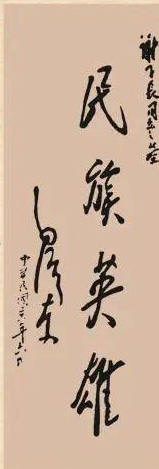 謝子長同志之墓
民族英雄
毛澤東
中華民國